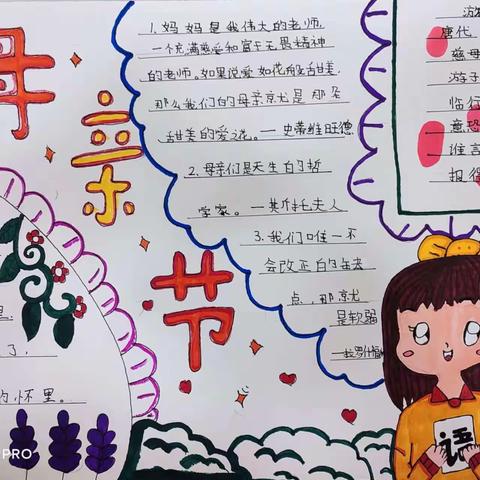 母亲节
1. 妈妈是我伟大的老师,
一个充满慈爱和富于无畏精神
的老师。如果说爱如花般甜美,
那么我们的母亲就是那朵
甜美的爱之花。—史蒂维旺德
2. 母亲们是天生的哲
学家。—其斯托夫人
3. 我们唯一不
会改正的缺
点,那就
是软弱
唐代
慈母
游子
临行
意恐
谁言
报得
了,
的怀里。
语
PRO